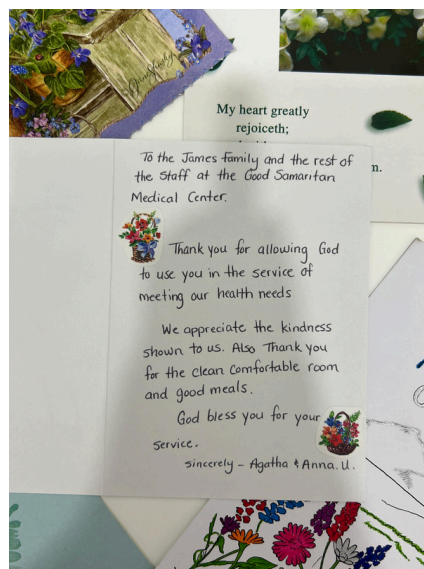 My heart greatly
rejoiceth;
To the James Family and the rest of
the Staff at the Good Samaritan
Medical Center.
Thank you for allowing God
to use you in the service of
meeting our health needs
We appreciate the kindness
shown to us. Also Thank you
for the clean comfortable room
and good meals.
God bless you for your
service.
sincerely - Agatha & Anna. U.